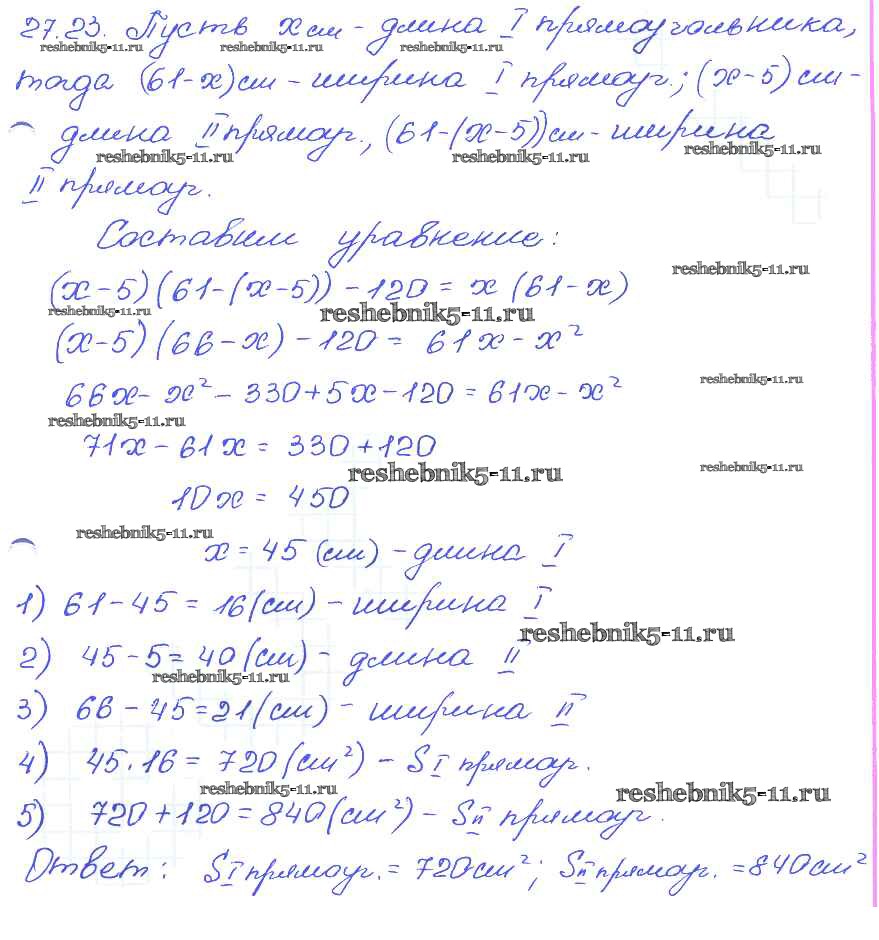 27.23. Пусть x см - длина I прямоугольника,
reshebnik5-11.ru reshebnik5-11.ru reshebnik5-11.ru
тогда (61-x) см - ширина I прямоуг.; (x-5) см -
длина II прямоуг., (61-(x-5)) см - ширина
reshebnik5-11.ru reshebnik5-11.ru reshebnik5-11.ru
II прямоуг.
Составим уравнение:
reshebnik5-11.ru
(x-5)(61-(x-5)) - 120 = x (61-x)
reshebnik5-11.ru reshebnik5-11.ru
(x-5)(66-x) - 120 = 61x - x²
reshebnik5-11.ru
66x - x² - 330 + 5x - 120 = 61x - x²
reshebnik5-11.ru
71x - 61x = 330 + 120
reshebnik5-11.ru reshebnik5-11.ru
10x = 450
reshebnik5-11.ru
x = 45 (см) - длина I
1) 61 - 45 = 16 (см) - ширина I
reshebnik5-11.ru
2) 45 - 5 = 40 (см) - длина II
reshebnik5-11.ru
3) 66 - 45 = 21 (см) - ширина II
4) 45 · 16 = 720 (см²) - S I прямоуг.
reshebnik5-11.ru reshebnik5-11.ru
5) 720 + 120 = 840 (см²) - S II прямоуг.
Ответ: S I прямоуг. = 720 см²; S II прямоуг. = 840 см²